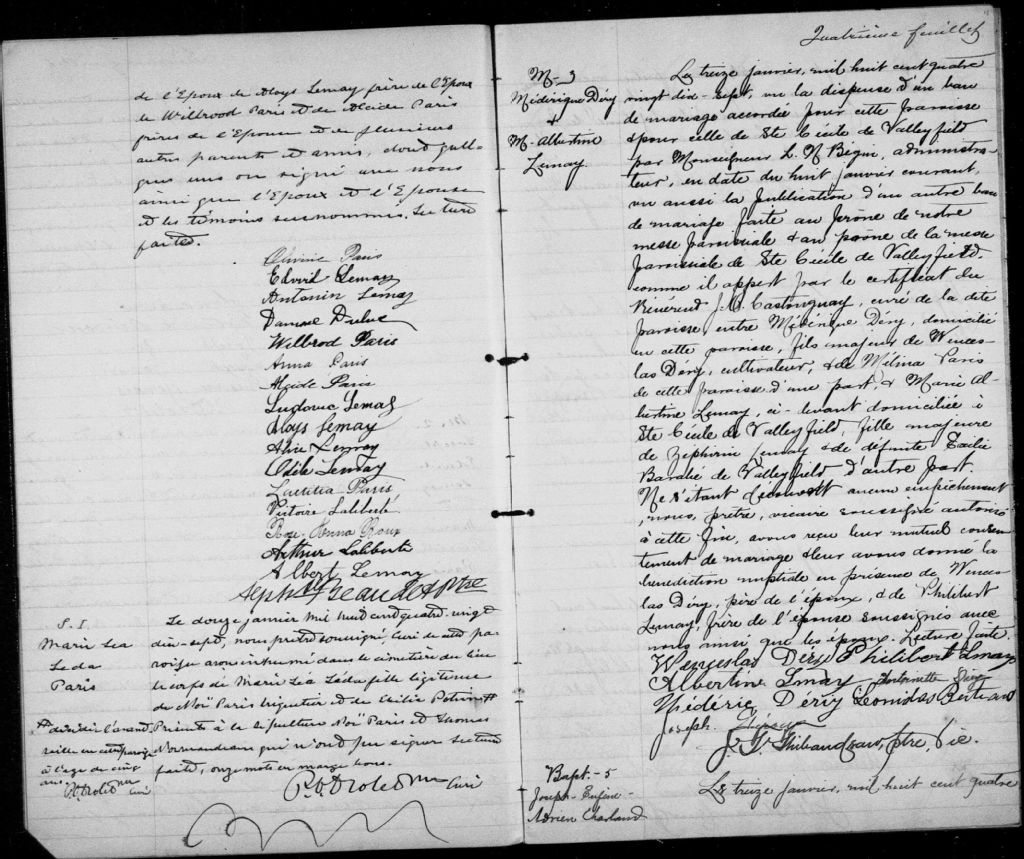 de l'Epoux de Aloys Lemay frère de l'Epoux
de Willbrod Paris et de Alcide Paris
frères de l'Epouse et de plusieurs
autres parents et amis, dont quel-
ques uns on signé avec nous
ainsi que l'Epoux et l'Epouse
et les témoins susnommés. Lecture
faite.
Paris
Edouard Lemay
Antonin Lemay
Wilbrod Paris
Anna Paris
Alcide Paris
Ludovic Lemay
Aloys Lemay
Alice Lemay
Odile Lemay
Laetitia Paris
Victoire Laliberté
Rose-Anna Roux
Arthur Laliberté
Albert Lemay
S. 1
Marie Lea
Leda
Paris
Le douze janvier mil huit cent quatre vingt
dix-sept, nous prêtre soussigné curé de cette pa-
roisse avons inhumé dans le cimetière du lieu
le corps de Marie Léa Léda fille légitime
de Noë Paris et de Exilia
Présents à la sépulture Noë Paris et Thomas
Normandeau qui n'ont pu signer lecture
faite, onze mots en marge bons.
Curé
décédée l'avant
veille en cette paroisse
à l'age de cinq
ans.
Curé
Quatrième feuillet
M-3
Médérique Déry
&
M. Albertine
Lemay
Le treize janvier, mil huit cent quatre
vingt dix-sept, vu la dispense d'un ban
de mariage accordée pour cette paroisse
& pour celle de Ste Cécile de Valleyfield
par Monseigneur L. N. Bégin, administra-
teur, en date du huit janvier courant,
vu aussi la publication d'un autre ban
de mariage faite au prône de notre
messe paroissiale & au prône de la messe
paroissiale de Ste Cécile de Valleyfield,
comme il appert par le certificat du
Révérend J. Castonguay, curé de la dite
paroisse entre Médérique Déry, domicilié
en cette paroisse, fils majeur de Wences-
las Déry, cultivateur, & de Mélina Paris
de cette paroisse d'une part, & Marie Al-
bertine Lemay, ci-devant domiciliée à
Ste Cécile de Valleyfield, fille majeure
de Zephirin Lemay & de défunte
de Valleyfield d'autre part.
Ne s'étant découvert aucun empêchement
, nous, prêtre, vicaire soussigné autorisé
à cette fin, avons reçu leur mutuel consen-
tement de mariage & leur avons donné la
bénédiction nuptiale en présence de Wences-
las Déry, père de l'époux, & de Philibert
Lemay, frère de l'épouse soussignés avec
nous ainsi que les époux. Lecture faite.
Wenceslas Déry Philibert Lemay
Albertine Lemay Antoinette Déry
Médéric Déry Léonidas Bertrand
Joseph
Thibaudeau, ptre Vic.
Bapt.-5
Joseph-Eugène-
Adrien Charland
Le treize janvier, mil huit cent quatre